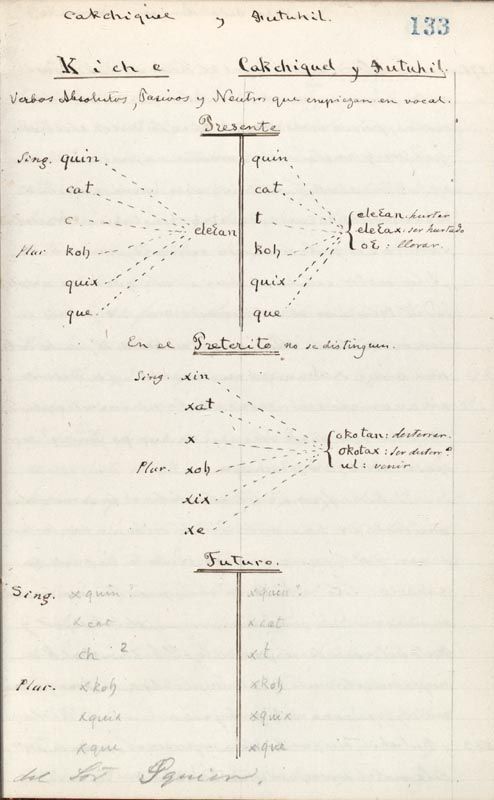 Cakchique y Zutuhil.
133
Kiche Cakchiquel y Zutuhil.
Verbos Absolutos, Pasivos y Neutros que empiezan en vocal.
Presente
Sing. quin quin
cat cat
c t eleƐan: hurtar
eleƐan eleƐax: ser hurtado
Plur koh koh oƐ: llorar.
quix quix
que que
En el Preterito no se distinguen.
Sing. xin
xat
x okotan: desterrar.
okotax: ser desterr.º
Plur. xoh ul: venir
xix
xe
Futuro.
Sing. xquin? xquin?
xcat xcat
ch ? xt
Plur. xkoh xkoh
xquix xquix
xque xque
del Sor